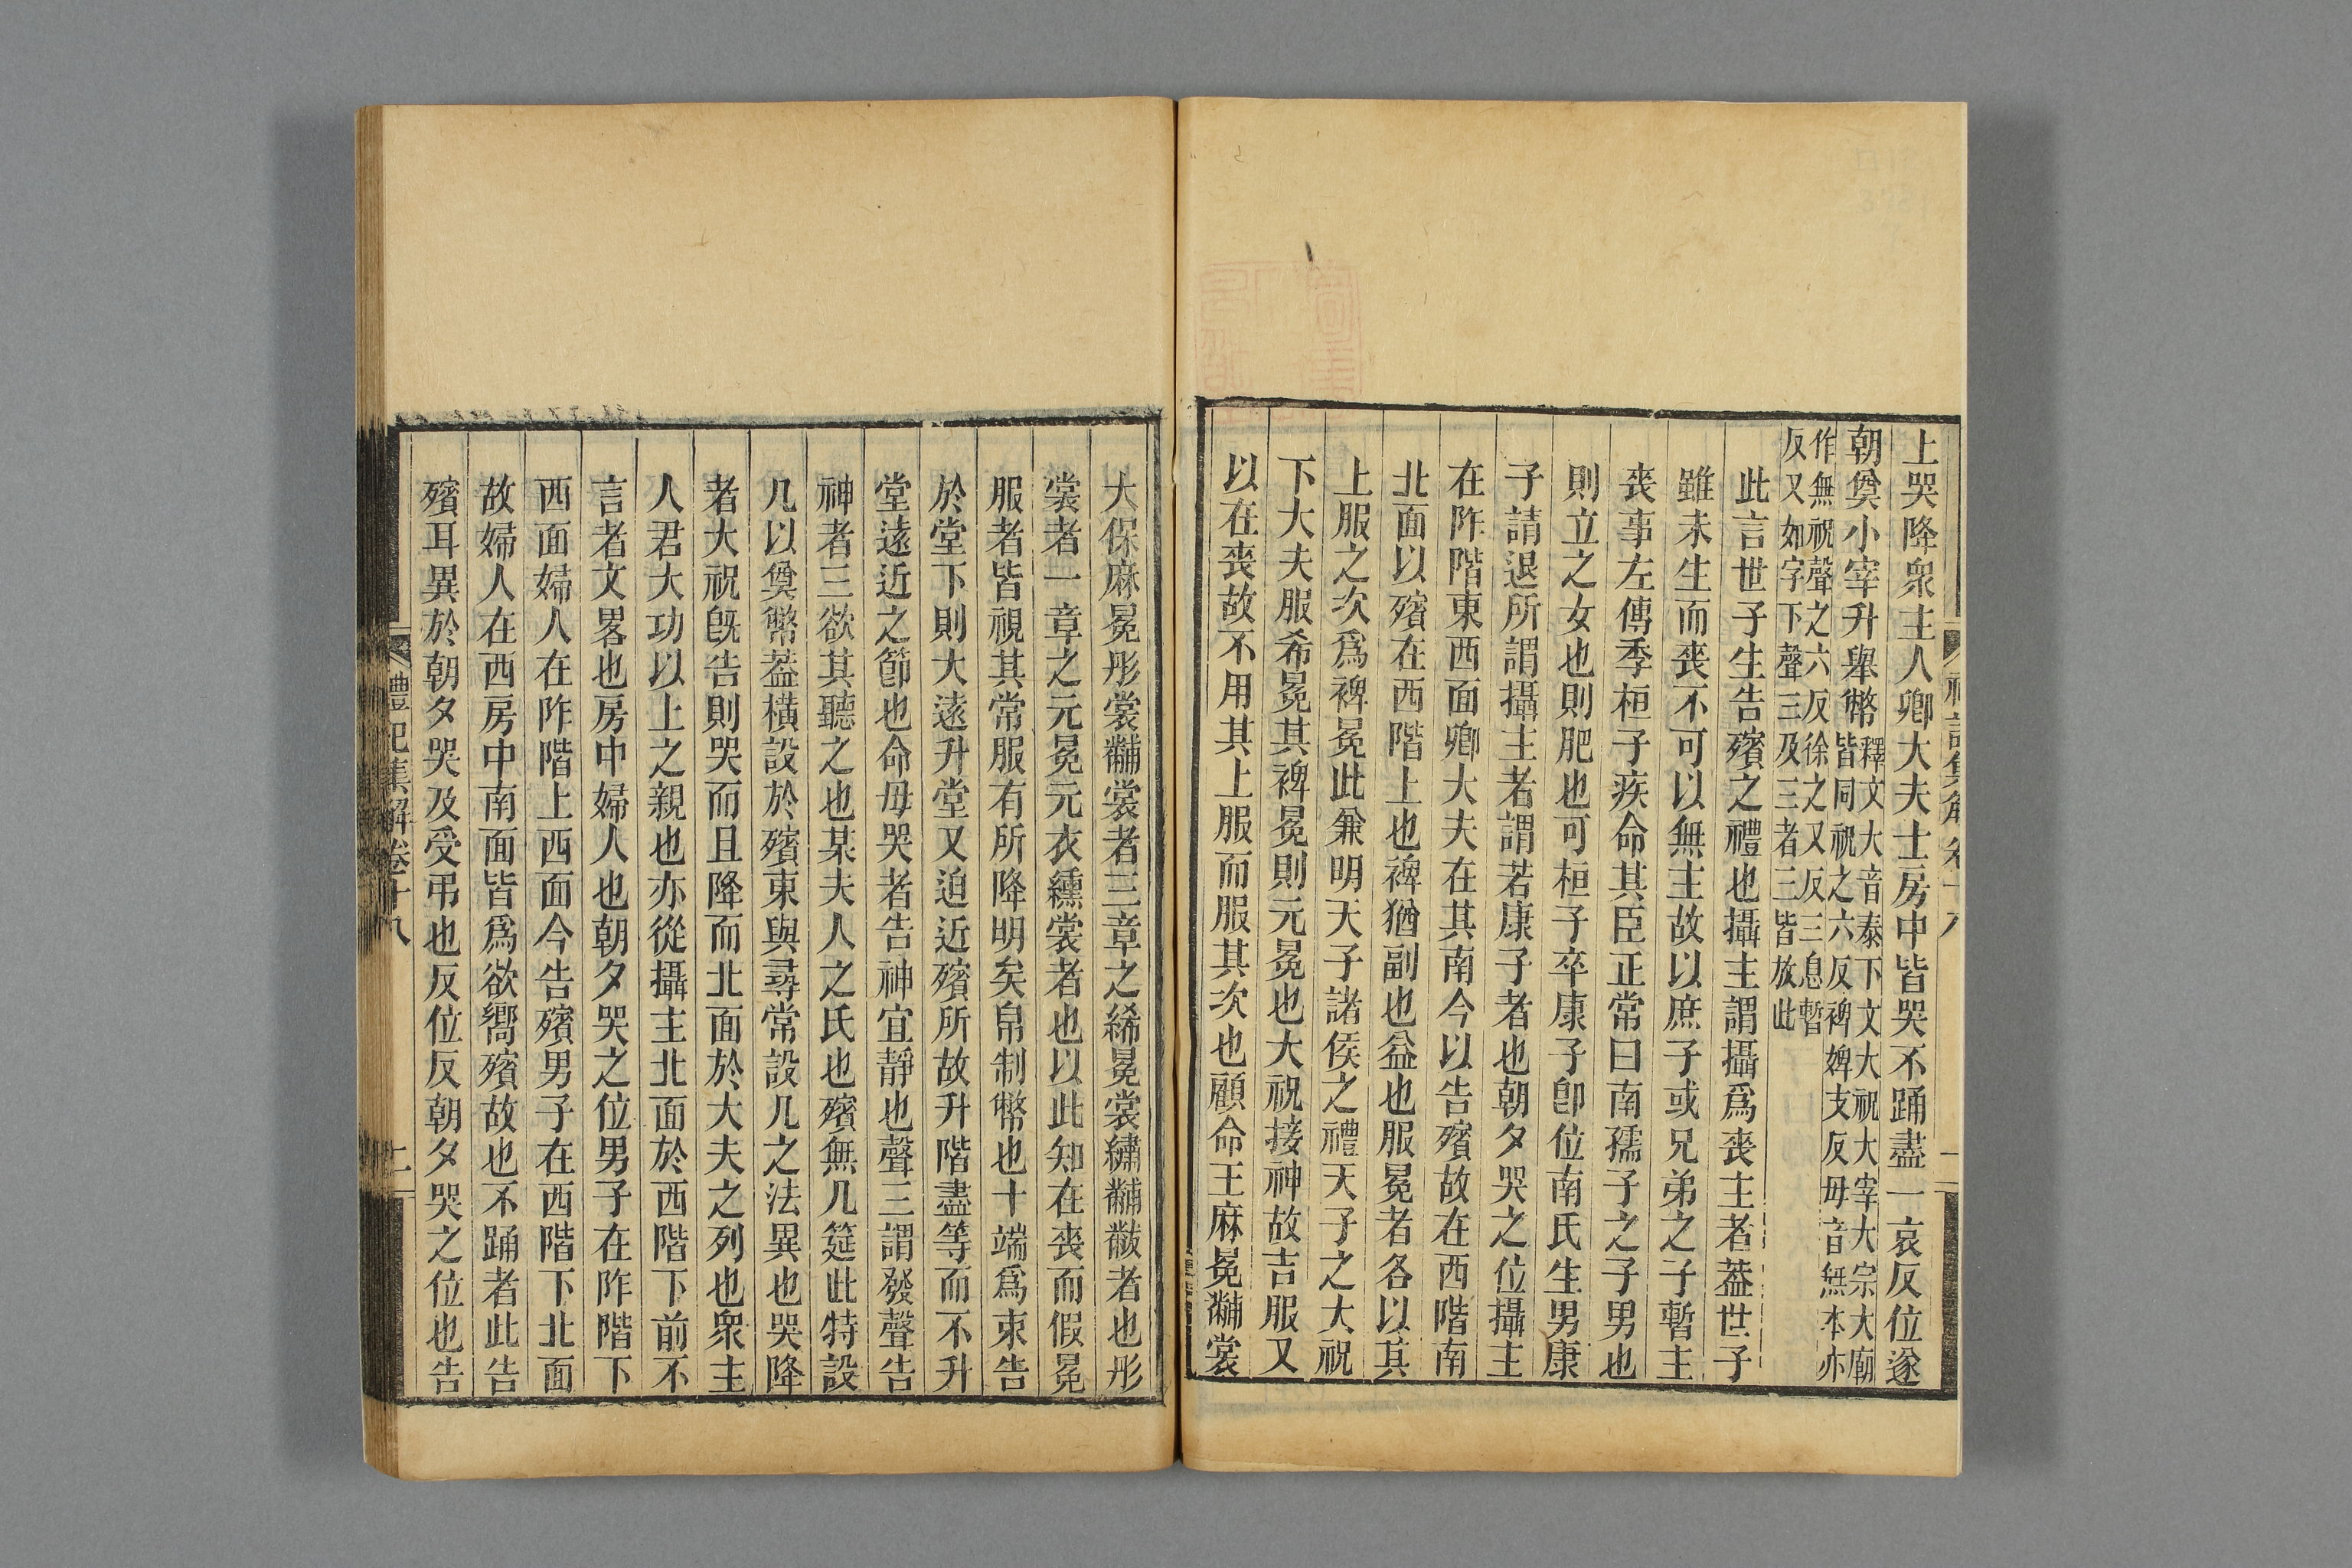 上哭降衆主人卿大夫士房中皆哭不踊盡一哀反位遂
朝奠小宰升舉幣釋文大音泰下文大祝大宰大宗大廟
皆同祝之六反裨婢支反毋音無本亦
作無祝聲之六反徐之又反三息暫
反又如字下聲三及三者三皆放此
此言世子生告殯之禮也攝主謂攝爲喪主者葢世子
雖未生而喪不可以無主故以庶子或兄弟之子暫主
喪事左傳季桓子疾命其臣正常曰南孺子之子男也
則立之女也則肥也可桓子卒康子卽位南氏生男康
子請退所謂攝主者謂若康子者也朝夕哭之位攝主
在阼階東西面卿大夫在其南今以告殯故在西階南
北面以殯在西階上也裨猶副也益也服冕者各以其
上服之次爲裨冕此兼明天子諸侯之禮天子之大祝
下大夫服希冕其裨冕則元冕也大祝接神故吉服又
以在喪故不用其上服而服其次也顧命王麻冕黼裳
大保麻冕彤裳黼裳者三章之絺冕裳繡黼黻者也彤
裳者一章之元冕元衣纁裳者也以此知在喪而假冕
服者皆視其常服有所降明矣帛制幣也十端爲束告
於堂下則大遠升堂又迫近殯所故升階盡等而不升
堂遠近之節也命毋哭者告神宜靜也聲三謂發聲告
神者三欲其聽之也某夫人之氏也殯無几筵此特設
几以奠幣葢橫設於殯東與尋常設几之法異也哭降
者大祝旣告則哭而且降而北面於大夫之列也衆主
人君大功以上之親也亦從攝主北面於西階下前不
言者文畧也房中婦人也朝夕哭之位男子在阼階下
西面婦人在阼階上西面今告殯男子在西階下北面
故婦人在西房中南面皆爲欲嚮殯故也不踊者此告
殯耳異於朝夕哭及受弔也反位反朝夕哭之位也告
禮記集解卷十八
二